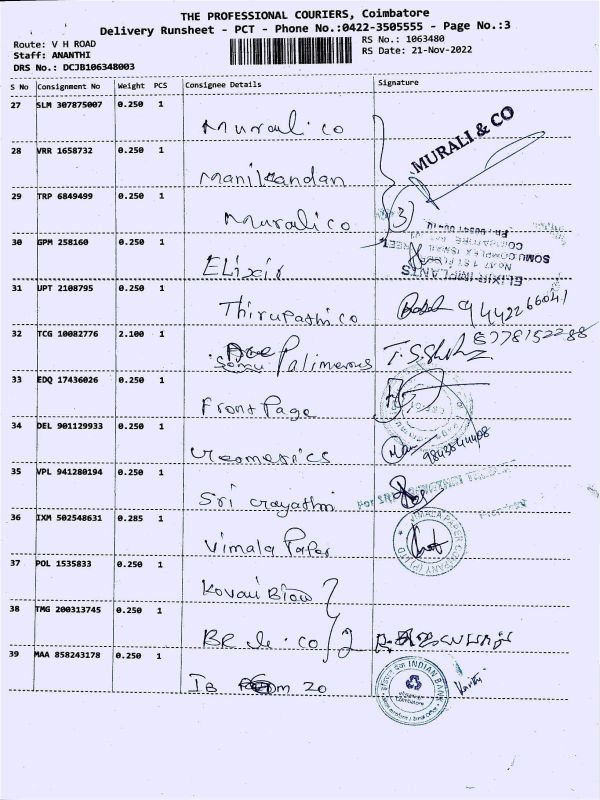 THE PROFESSIONAL COURIERS, Coimbatore
Delivery Runsheet - PCT - Phone No.:0422-3505555 - Page No.:3
Route: V H ROAD
Staff: ANANTHI
DRS No.: DCJB106348003
RS No.: 1063480
RS Date: 21-Nov-2022
S No Consignment No Weight PCS Consignee Details Signature
27 SLM 307875007 0.250 1 Murali co
MURALI & CO
28 VRR 1658732 0.250 1 Manikandan
29 TRP 6849499 0.250 1 Murali co 3
30 GPM 258160 0.250 1 Elixir
ELIXIR IMPLANTS
SOMU COMPLEX
31 UPT 2108795 0.250 1 Thirupathi co 94442266041
32 TCG 10082776 2.100 1 Somu Palimerous 8778152288
33 EDQ 17436026 0.250 1 Front Page
34 DEL 901129933 0.250 1 Geometrics
35 VPL 941280194 0.250 1 Sri Gayathri
36 IXM 502548631 0.285 1 Vimala Paper
VIMALA PAPER COMPANY (P) LTD
37 POL 1535833 0.250 1 Kovai Blow
38 TMG 200313745 0.250 1 BR & co 2
39 MAA 858243178 0.250 1 IB Room 20
INDIAN BANK